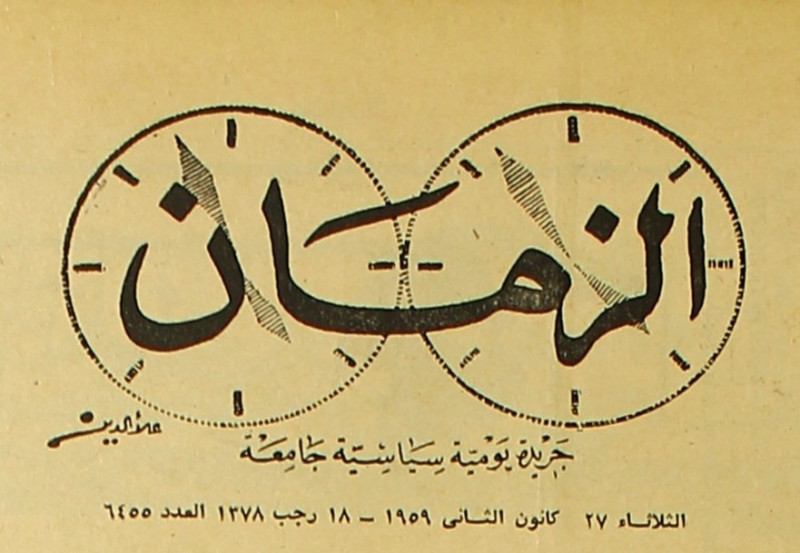 الزمان
علاءالدين
جَريْدة يَوْميّة سِيَاسِيّة جَامِعَة
الثلاثاء ٢٧ كانون الثانى ١٩٥٩ – ١٨ رجب ١٣٧٨ العدد ٦٤٥٥